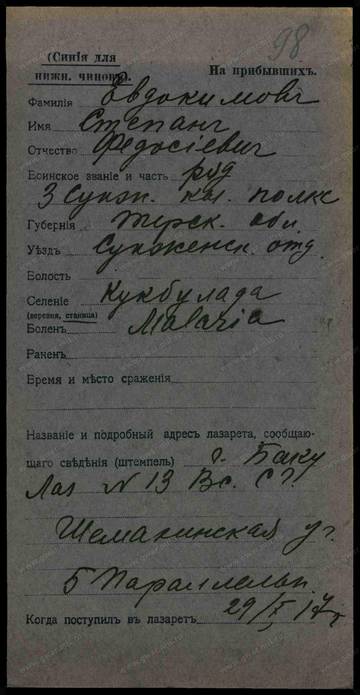 98
(Синія для
нижн. чиновъ).
На прибывшихъ.
Фамилія Евдокимовъ
Имя Степанъ
Отчество Федосіевич
Воинское званіе и часть ряд
3 Сунж. каз. полка
Губернія Терск. обл.
Уѣздъ Сунженск. отд.
Волость
Селеніе Кукбулада
(деревня, станица)
Боленъ Malaria
Раненъ
Время и мѣсто сраженія
Названіе и подробный адресъ лазарета, сообщаю-
щаго свѣдѣнія (штемпель) г. Баку
Лаз N 13 Вс. С. Г.
Шемахинская уг.
5 Параллельн.
Когда поступилъ въ лазаретъ 29/I 17 г.